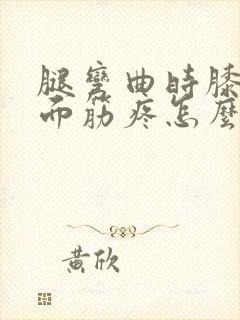 腿彎曲時膝
而筋疼怎麼
黃欣